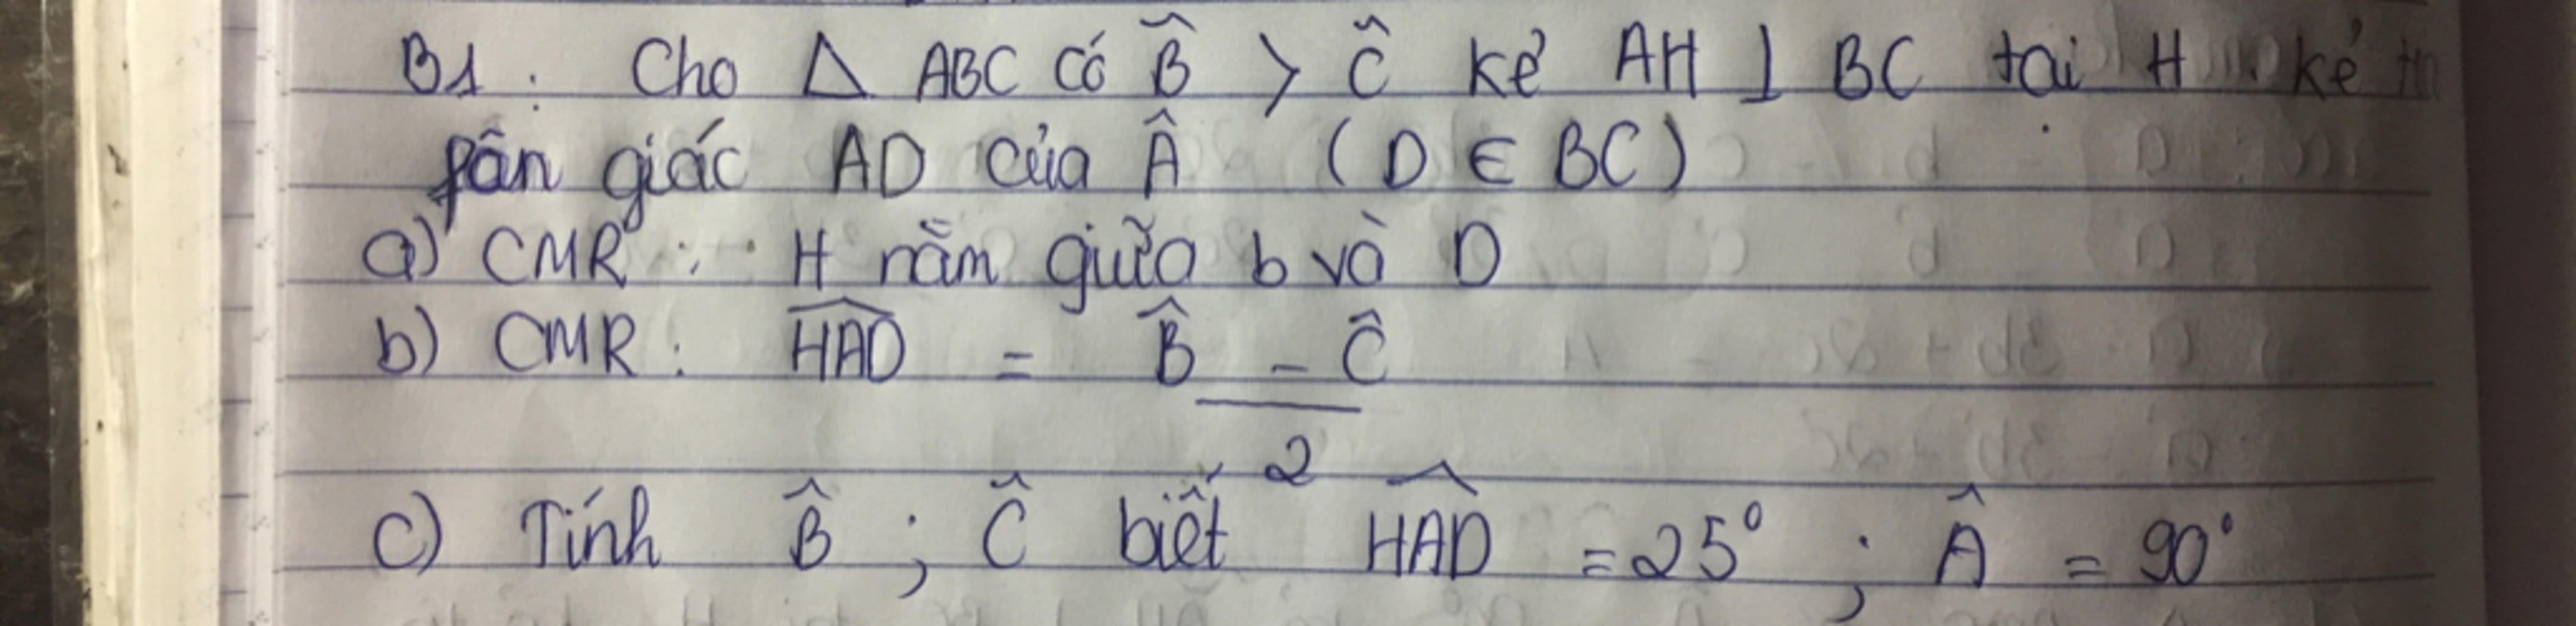 B1: Cho △ ABC có B̂ > Ĉ kẻ AH ⊥ BC tai H. kẻ
pân giác AD của Â (D ∈ BC)
a) CMR: H nằm giữa b và D
b) CMR: \widehat{HAD} = \frac{B̂ - Ĉ}{2}
c) Tính B̂; Ĉ biết \widehat{HAD} = 25°; Â = 90°